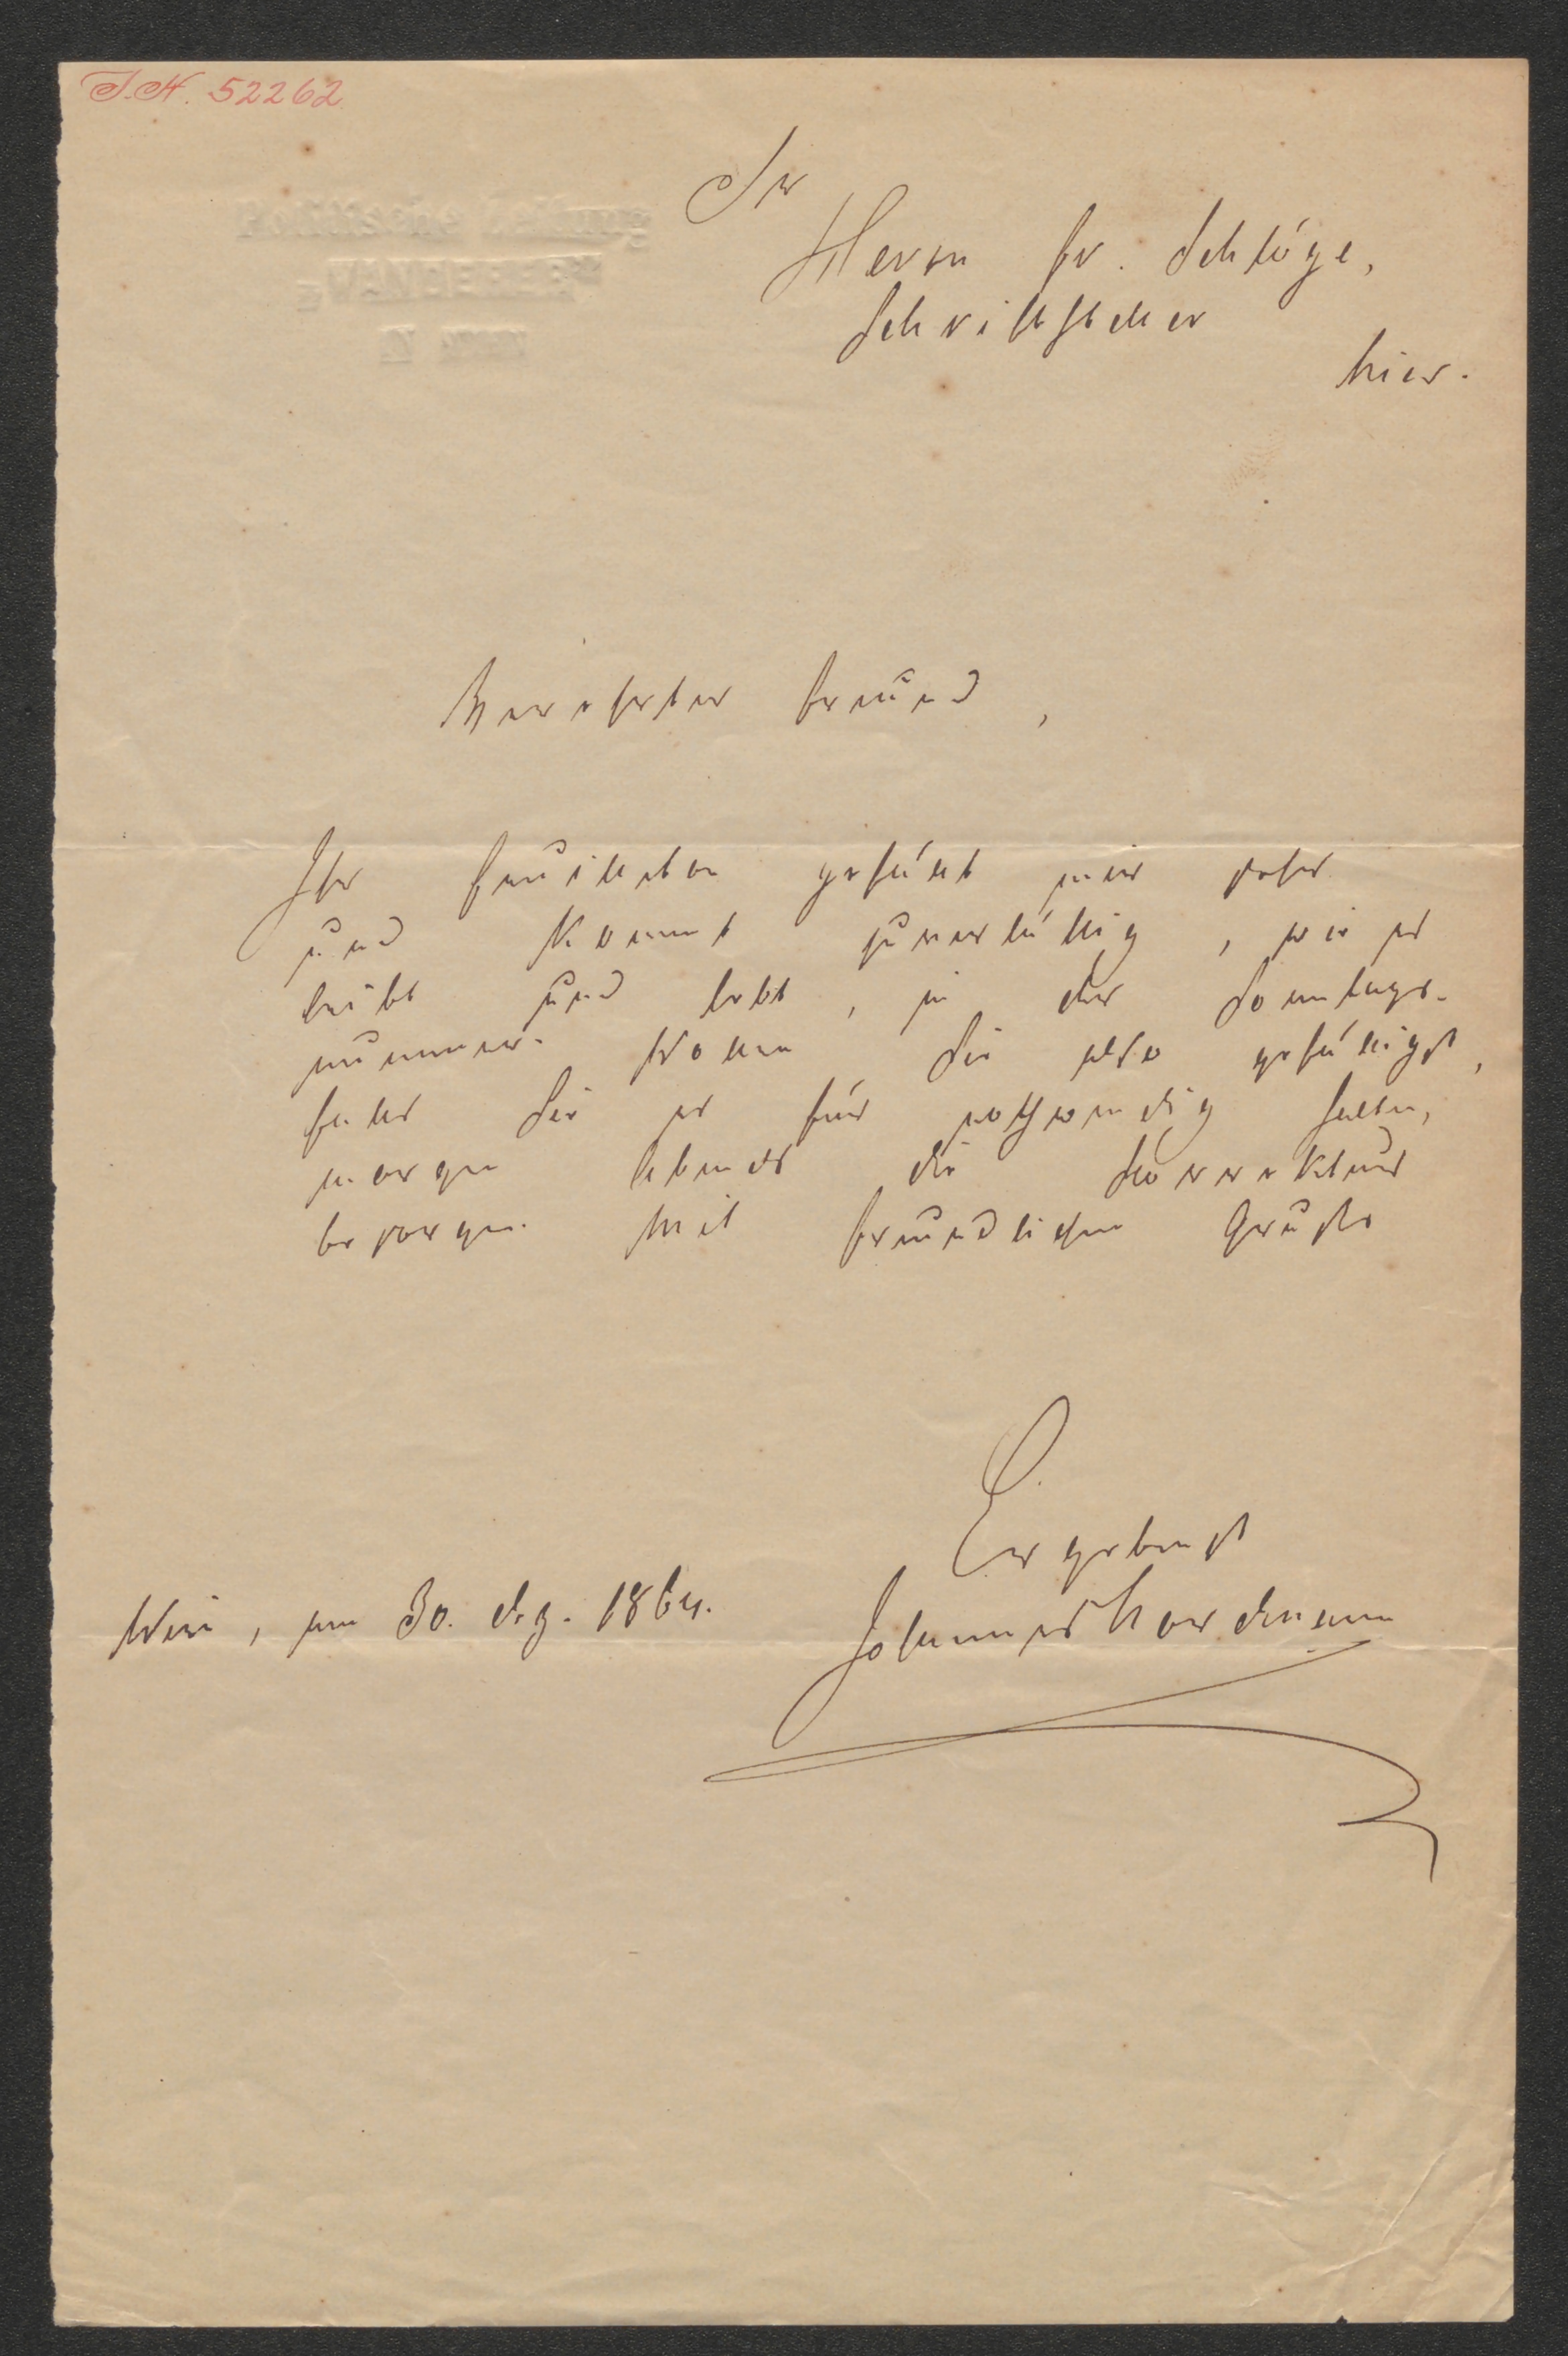 I.N. 52262
Politische Zeitung
„WANDERER“
Sr
Herrn Fr. Schlögl,
Schriftsteller
hier.
Verehrter Freund,
Ihr Feuilleton gefällt mir sehr
und kommt zuverläßig, wie es
leibt und lebt, in der Sonntags-
nummer. Wollen Sie also gefälligst,
falls Sie es für nothwendig halten,
morgen Abends die Korrektur
besorgen. Mit freundlichem Gruße
Ergebenst
Johannes Nordmann
Wien, am 30. Dez. 1864.